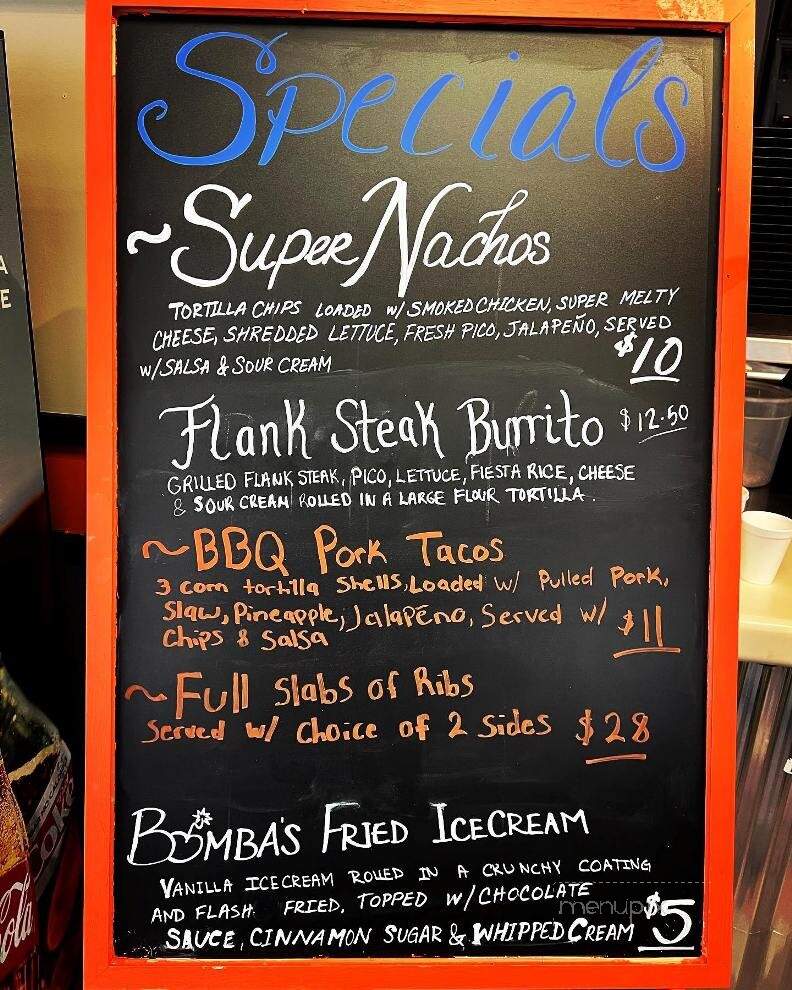 Specials
~Super Nachos
TORTILLA CHIPS LOADED w/ SMOKED CHICKEN, SUPER MELTY
CHEESE, SHREDDED LETTUCE, FRESH PICO, JALAPEÑO, SERVED
w/ SALSA & SOUR CREAM $10
Flank Steak Burrito $12.50
GRILLED FLANK STEAK, PICO, LETTUCE, FIESTA RICE, CHEESE
& SOUR CREAM ROLLED IN A LARGE FLOUR TORTILLA.
~BBQ Pork Tacos
3 corn tortilla Shells, Loaded w/ Pulled Pork,
Slaw, Pineapple, Jalapeño, Served w/
Chips & Salsa $11
~Full Slabs of Ribs
Served w/ Choice of 2 Sides $28
BOMBA'S FRIED ICECREAM
VANILLA ICECREAM ROLLED IN A CRUNCHY COATING
AND FLASH FRIED. TOPPED w/ CHOCOLATE
SAUCE, CINNAMON SUGAR & WHIPPED CREAM $5
menup
A
E